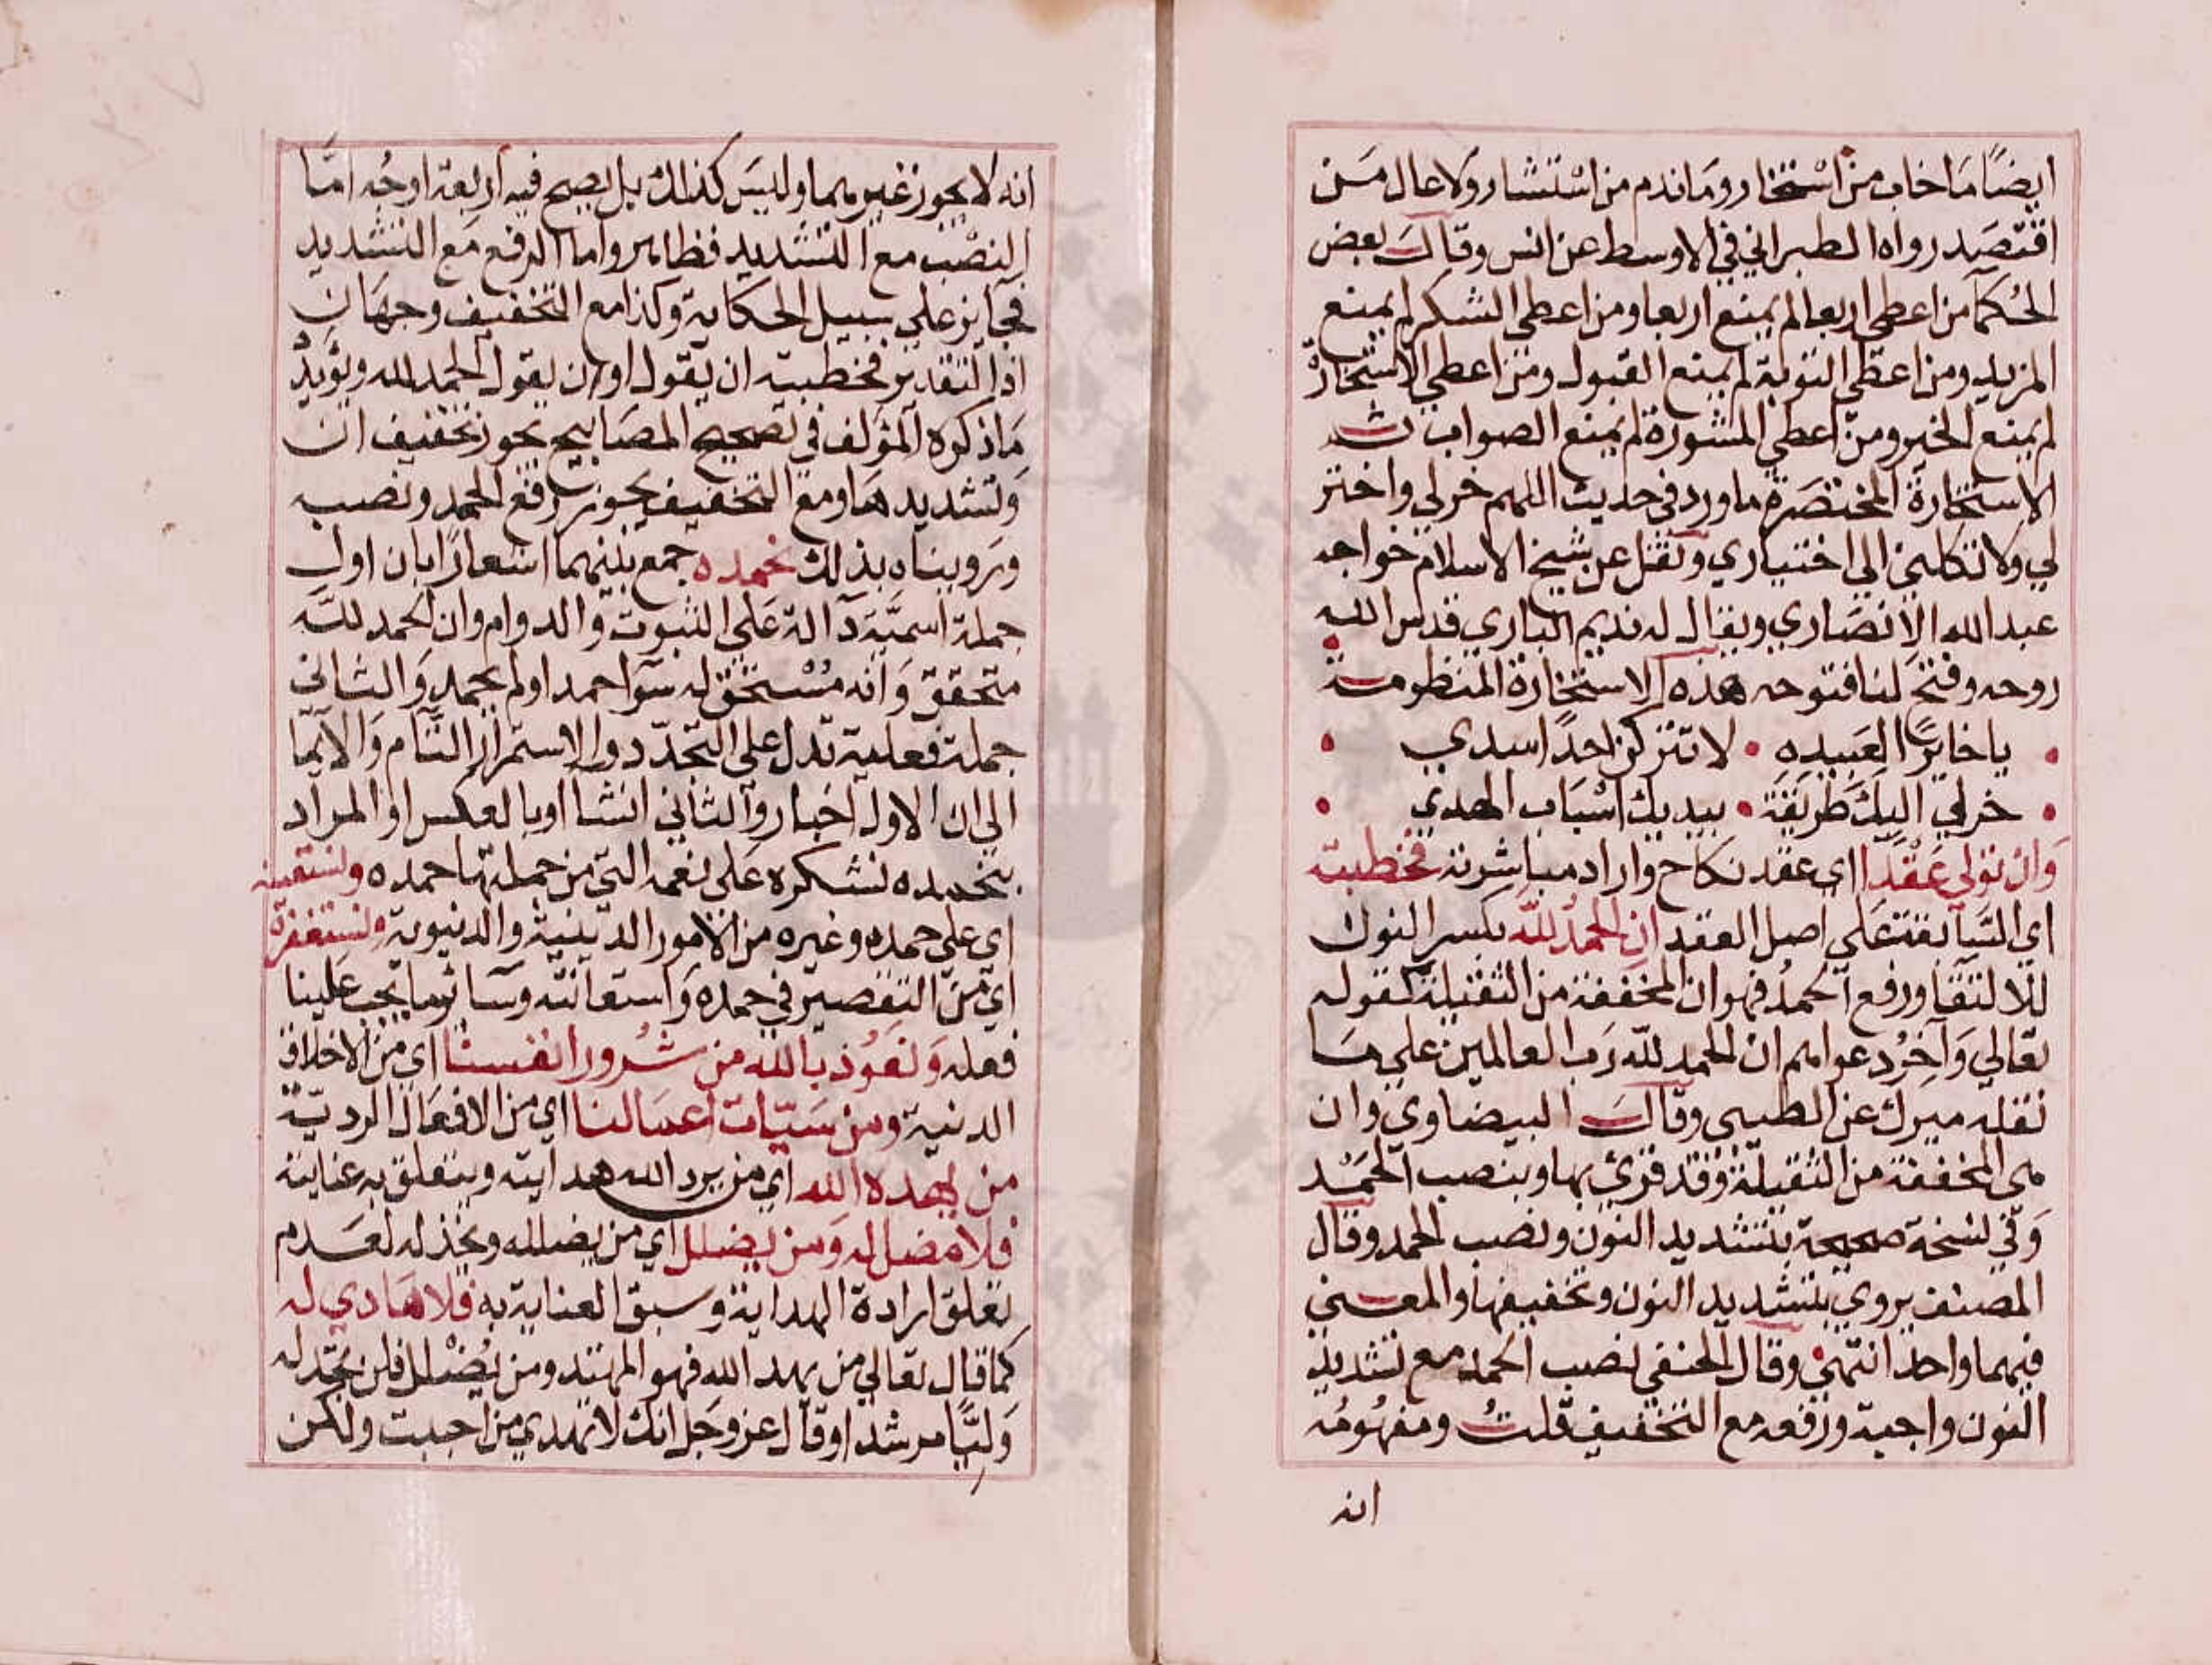 ايضًا مَا خاب من اسْتخار ومَا ندم من اسْتشار ولا عال مَن
اقتصَد رواه الطبراني في الاوسط عن انس وقال بعض
الحُكمآ من اعطي اربعا لم يمنع اربعا ومن اعطي الشكر لم يمنع
المزيد ومن اعطي التوبة لم يمنع القبول ومن اعطي الاستخارة
لم يمنع الخير ومن اعطي المشورة لم يمنع الصواب ث
الاستخارة المختصَرة ما ورد في حديث اللهم خر لي واختر
لي ولا تكلني الي اختياري ونقل عن شيخ الاسلام خواجه
عبد الله الانصَاري ويقال له نديم الباري قدس الله
روحه وفتح لنا فتوحه هذه الاستخارة المنظومة
• يا خايرًا لعَبيده • لا تتركن احدًا سدي •
• خر لي اليك طريقة • بيديك اسْبَاب الهدي •
وَان تولي عَقْدًا اي عقد نكاح واراد مباشرته فخطبته
اي السَّابقة علي اصل العقد ان الحمدُ للّه بكسر النون
للالتقا ورفع الحمدُ فهو ان المخففة من الثقيلة كقوله
تعالي وَآخِرُ دعواهم ان الحمد للّه رَب العالمين علي مَا
نقله ميرك عن الطيبي وقال البيضاوي وان
هي المخففة من الثقيلة وقد قرئ بها وبنصب الحمْد
وَفي نسخة صحيحة بتشديد النون ونصب الحمد وقال
المصنف يروي بتشديد النون وتخفيفها والمعني
فيهما واحد انتهي وقال الحنفي نصب الحمد مع تشديد
النون واجبة ورفعه مع التخفيف قلتُ ومفهُومُه
انه
انه لا يجوز غيرهما وليسَ كذلك بل يصح فيه اربعة اوجُه امّا
النصْب مع التشديد فظاهر واما الرفع مَع التشديد
فجايز علي سبيل الحكاية وكذا مع التخفيف وجهَان
اذا التقدير فخطبته ان يقول او ان يقول الحمد لله ويؤيدْ
مَا ذكره المؤلف في تصحيح المصَابيح يجوز تخفيف انَ
وَتشديدهَا ومع التخفيف يجوز رفع الحمد ونصبه
ورَويناه بذلك نحمده جمع بينهما اشعارًا بان اول
جملة اسميَّة دآلة عَلي الثبوت والدوام وان الحمد للّه
متحقق وَانه مُسْتحق له سوآ حمد او لم يحمد وَالثاني
جملة فعلية تدل علي التجدّد والاستمرار التَّام وَالايما
الي ان الاول اخبار والثاني انشآ او بالعكس او المراد
بنحمده نشكره عَلي نعمه التي من جملتها حمده ونستعينه
اي علي حمده وغيره من الامور الدينية والدنيوية ونستغفره
اي من التقصير في حمده وَاستعانته وسآئر ما يجب عَلينا
فعله وَنعُوذ بالله من شُرور انفسنا اي من الاخلاق
الدنية ومن سَيّات اعمَالنا اي من الافعَال الرديّة
من يهده الله اي من يرد الله هدايته ويتعلق به عنايته
فلا مضل له وَمن يضلل اي من يضلله ويخذله لعَدم
تعلق ارادة الهداية وسبق العناية به فلا هَادي له
كما قال تعالي من يهد الله فهو المهتد ومن يُضْلل فلن تجد له
وَليًّا مرشدا وقال عز وجَل انك لا تهدي من احببت ولكن